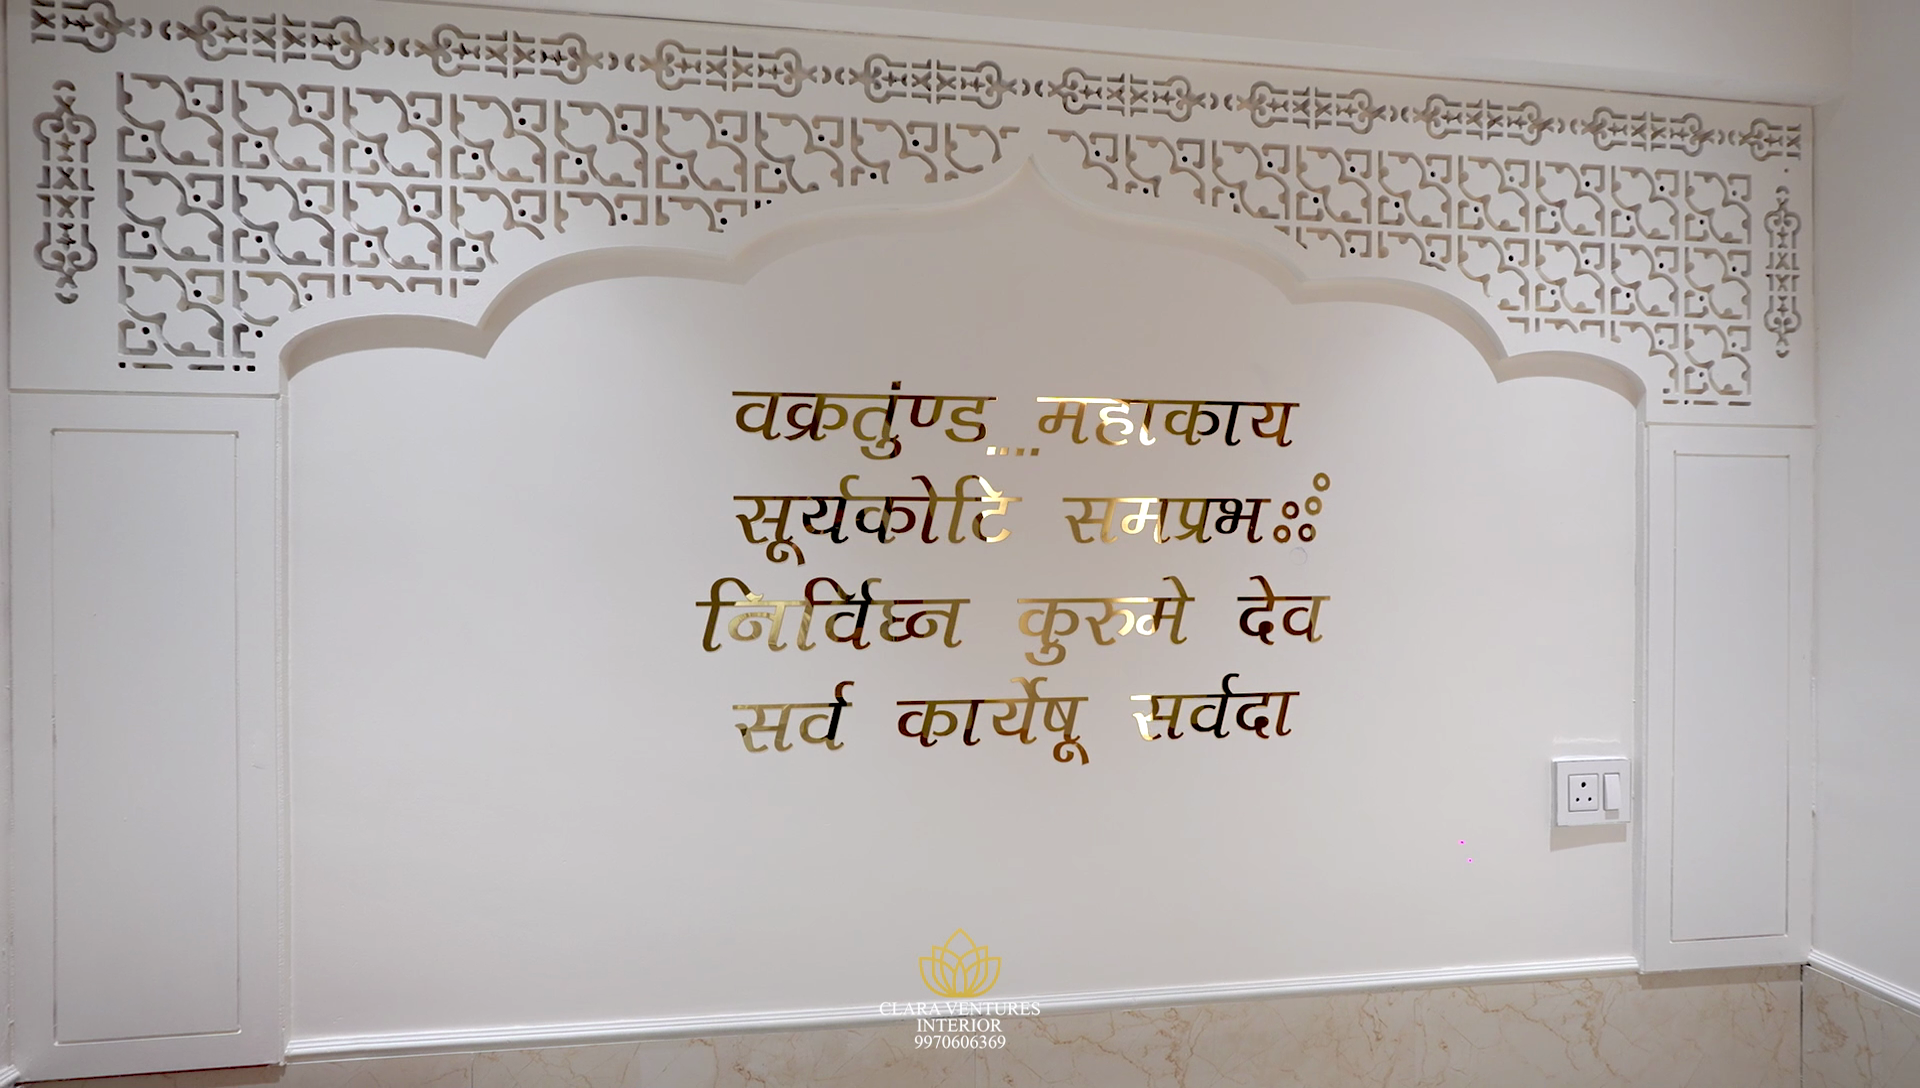 वक्रतुंण्ड महाकाय
सूर्यकोटि समप्रभ
निर्विघ्न कुरुमे देव
सर्व कार्येषू सर्वदा
CLARA VENTURES
INTERIOR
9970606369